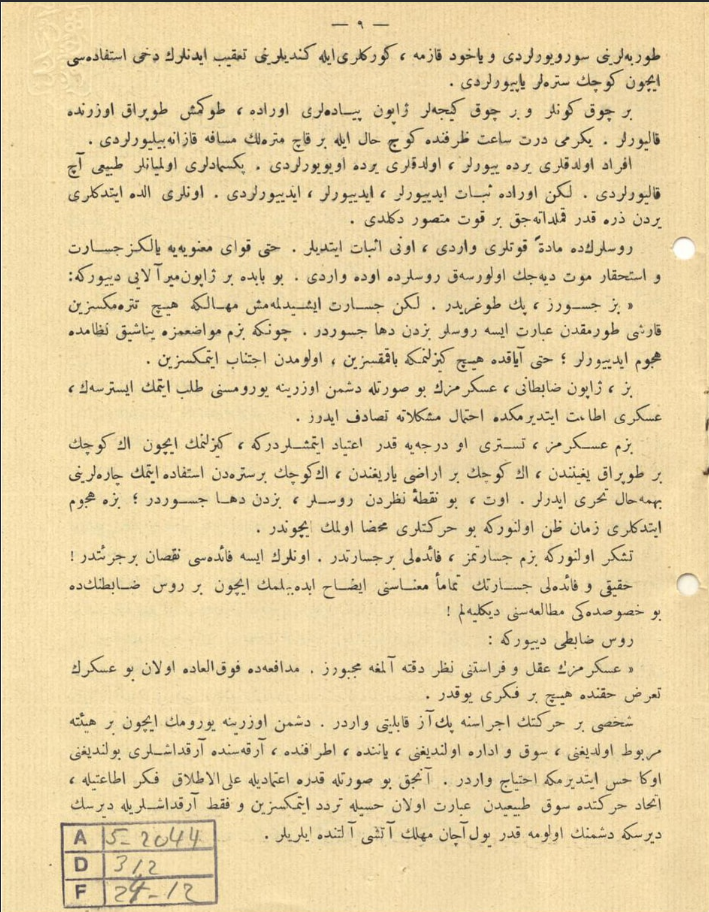 — ٩ —
طوربه‌لرینی سورویورلردی و یاخود قازمه ، کورکلری ایله کندیلرینی تعقیب ایدنلرك دخی استفاده‌سی
ایچون کوچك ستره‌لر یاپیورلردی .
بر چوق کونلر و بر چوق کیجه‌لر ژاپون پیاده‌لری اوراده ، طوکمش طوپراق اوزرنده
قالیورلر . یکرمی درت ساعت ظرفنده کوچ حال ایله بر قاچ متره‌لك مسافه قازانه‌بیلیورلردی .
افراد اولدقلری یرده ییورلر ، اولدقلری یرده اویویورلردی . پکسمادلری اولمیانلر طبیعی آچ
قالیورلردی . لکن اوراده ثبات ایدییورلر ، ایدییورلر ، ایدییورلردی . اونلری الده ایتدکلری
یردن ذره قدر قملداته‌جق بر قوت متصور دکلدی .
روسلرك‌ده مادةً قوتلری واردی ، اونی اثبات ایتدیلر . حتی قوای معنویه‌یه یالکز جسارت
و استحقار موت دیه‌جك اولورسه‌ق روسلرده اوده واردی . بو بابده بر ژاپون میرآلایی دییورکه:
« بز جسورز ، پك طوغریدر . لکن جسارت ایشیدلمه‌مش مهالکه هیچ تتره‌مکسزین
قارشی طورمقدن عبارت ایسه روسلر بزدن دها جسوردر . چونکه بزم مواضعمزه یناشیق نظامده
هجوم ایدییورلر ؛ حتی آیاقده هیچ کیزلنمکه باقمقسزین ، اولومدن اجتناب ایتمکسزین .
بز ، ژاپون ضابطانی ، عسکرمزك بو صورتله دشمن اوزرینه یورومسنی طلب ایتمك ایسترسه‌ك ،
عسکری اطاعت ایتدیرمکده احتمال مشکلاته تصادف ایدرز .
بزم عسکرمز ، تستری او درجه‌یه قدر اعتیاد ایتمشلردرکه ، کیزلنمك ایچون اك کوچك
بر طوپراق یغینندن ، اك کوچك بر اراضی یاریغندن ، اك کوچك برستره‌دن استفاده ایتمك چاره‌لرینی
بهمه‌حال تحری ایدرلر . اوت ، بو نقطهٔ نظردن روسلر ، بزدن دها جسوردر ؛ بزه هجوم
ایتدکلری زمان ظن اولنورکه بو حرکتلری محضا اولمك ایچوندر .
تشکر اولنورکه بزم جسارتمز ، فائده‌لی برجسارتدر . اونلرك ایسه فائده‌سی نقصان برجرئتدر !
حقیقی و فائده‌لی جسارتك تماماً معناسنی ایضاح ایده‌بیلمك ایچون بر روس ضابطنك‌ده
بو خصوصده‌کی مطالعه‌سنی دیکلیه‌لم !
روس ضابطی دییورکه :
« عسکرمزك عقل و فراستنی نظر دقته آلمغه مجبورز . مدافعه‌ده فوق‌العاده اولان بو عسکرك
تعرض حقنده هیچ بر فکری یوقدر .
شخصی بر حرکتك اجراسنه پك‌آز قابلیتی واردر . دشمن اوزرینه یورومك ایچون بر هیئته
مربوط اولدیغنی ، سوق و اداره اولندیغنی ، یاننده ، اطرافنده ، آرقه‌سنده آرقداشلری بولندیغنی
اوکا حس ایتدیرمکه احتیاج واردر . آنجق بو صورتله قدره اعتمادیله علی‌الاطلاق فکر اطاعتیله ،
اتحاد حرکتده سوق طبیعیدن عبارت اولان حسیله تردد ایتمکسزین و فقط آرقداشلریله دیرسك
دیرسکه دشمنك اولومه قدر یول‌آچان مهلك آتشی آلتنده ایلریلر .
A 5-2044
D 312
F 24-12